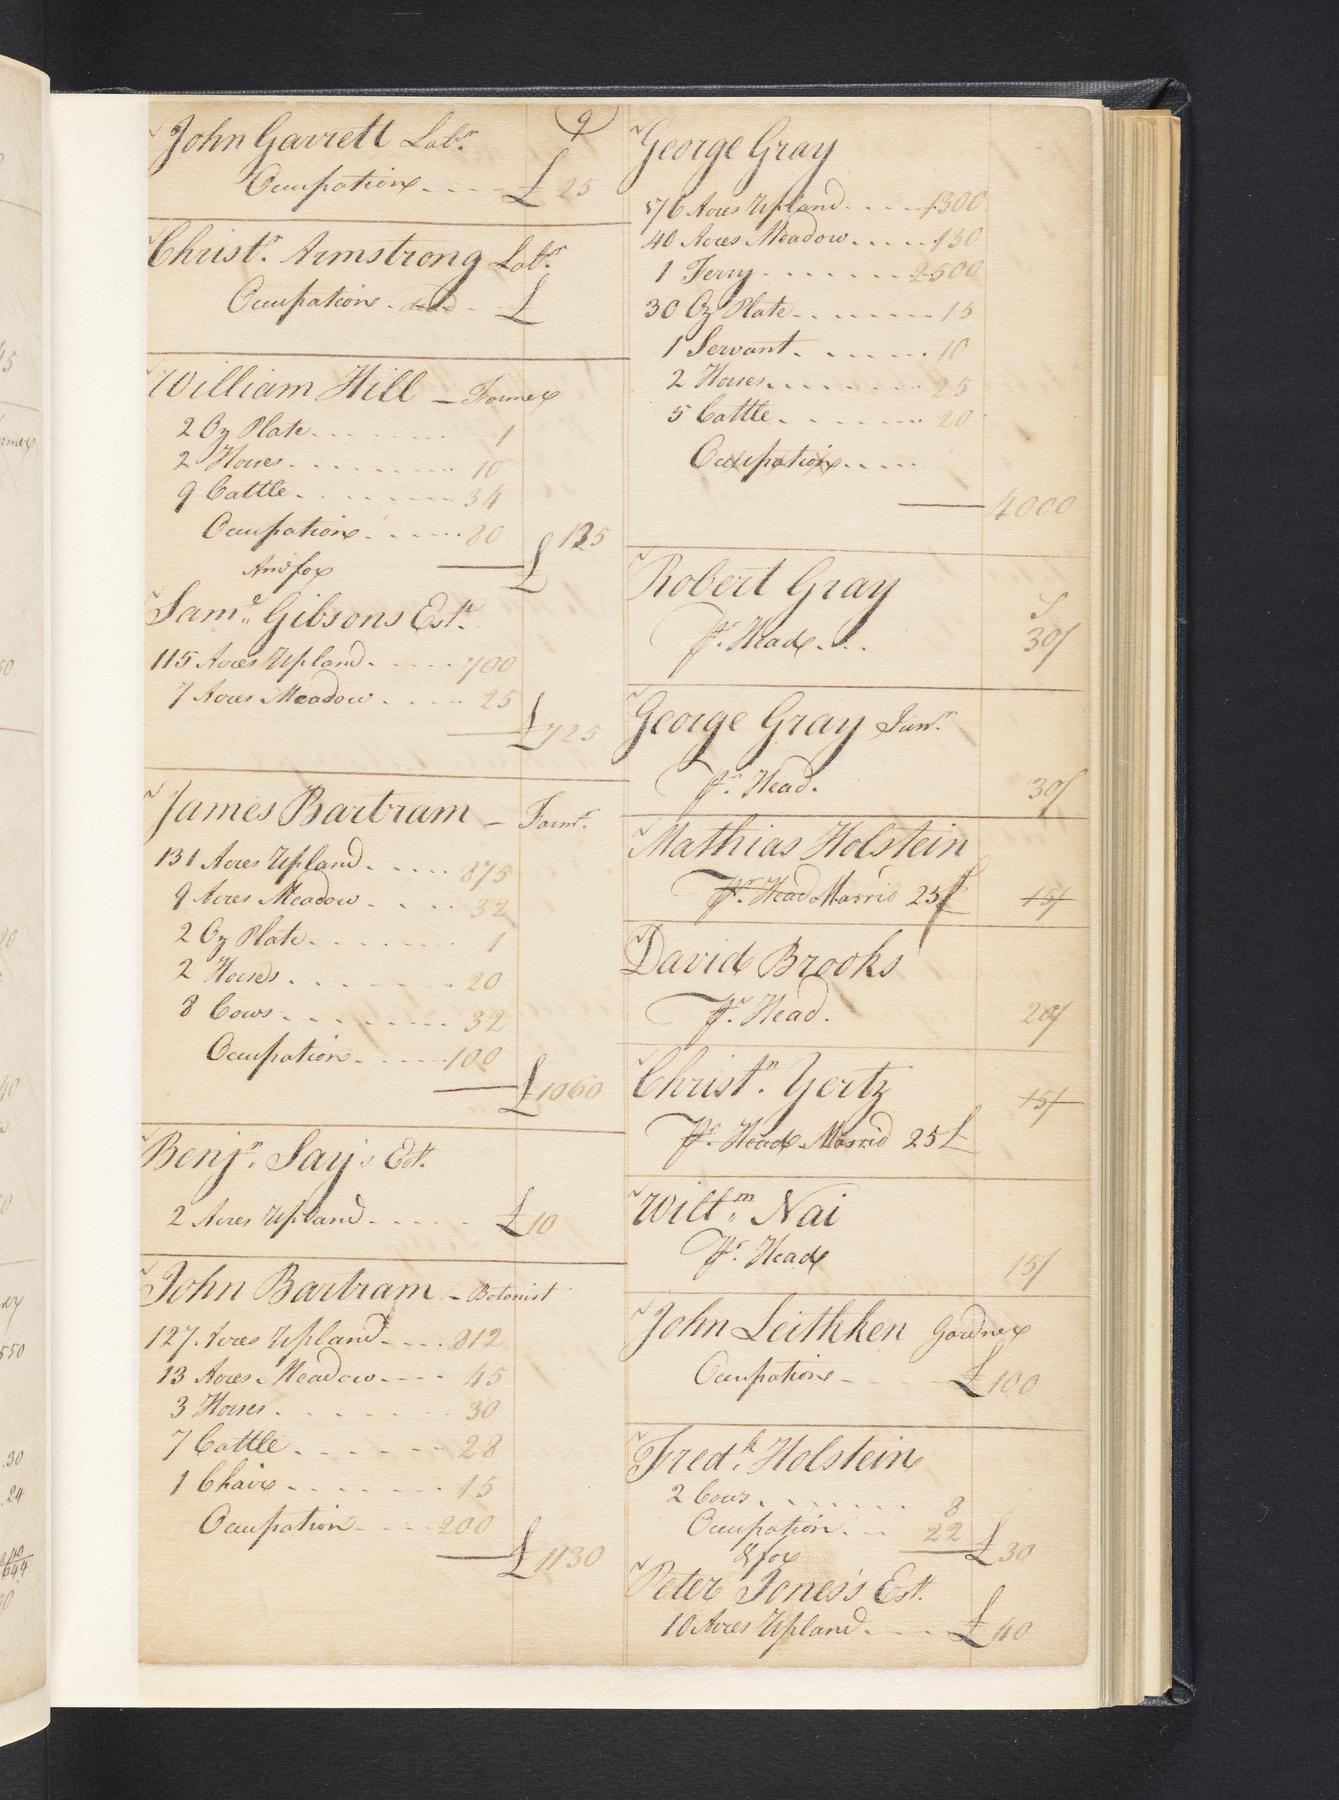 9
John Garrett Labr.
Occupation £ 25
Christr. Armstrong Labr.
Occupation dead £
William Hill - Farmer
2 Oz Plate 1
2 Horses 10
9 Cattle 34
Occupation 80
£ 125
And for
Saml. Gibsons Estt.
115 Acres Upland 700
7 Acres Meadow 25
£ 725
James Bartram - Farmr.
131 Acres Upland 875
9 Acres Meadow 32
2 Oz Plate 1
2 Horses 20
8 Cows 32
Occupation 100
£ 1060
Benjn. Say's Est.
2 Acres Upland £ 10
John Bartram - Botonist
127 Acres Upland 812
13 Acres Meadow 45
3 Horses 30
7 Cattle 28
1 Chair 15
Occupation 200
£ 1130
George Gray
176 Acres Upland 1300
40 Acres Meadow 130
1 Ferry 2500
30 Oz Plate 15
1 Servant 10
2 Horses 25
5 Cattle 20
Occupation
4000
Robert Gray
Pr. Head 30/
George Gray Junr.
Pr. Head. 30/
Mathias Holstein
Pr. Head Marrid 25£ 15/
David Brooks
Pr. Head. 20/
Christn. Yertz
15/
Pr. Head Marrid 25£
Willm. Nai
Pr. Head 15/
John Leithken Gardner
Occupation £ 100
Fredk. Holstein
2 Cows 8
Occupation 22 £ 30
& for
Peter Jones's Est.
10 Acres Upland £ 40